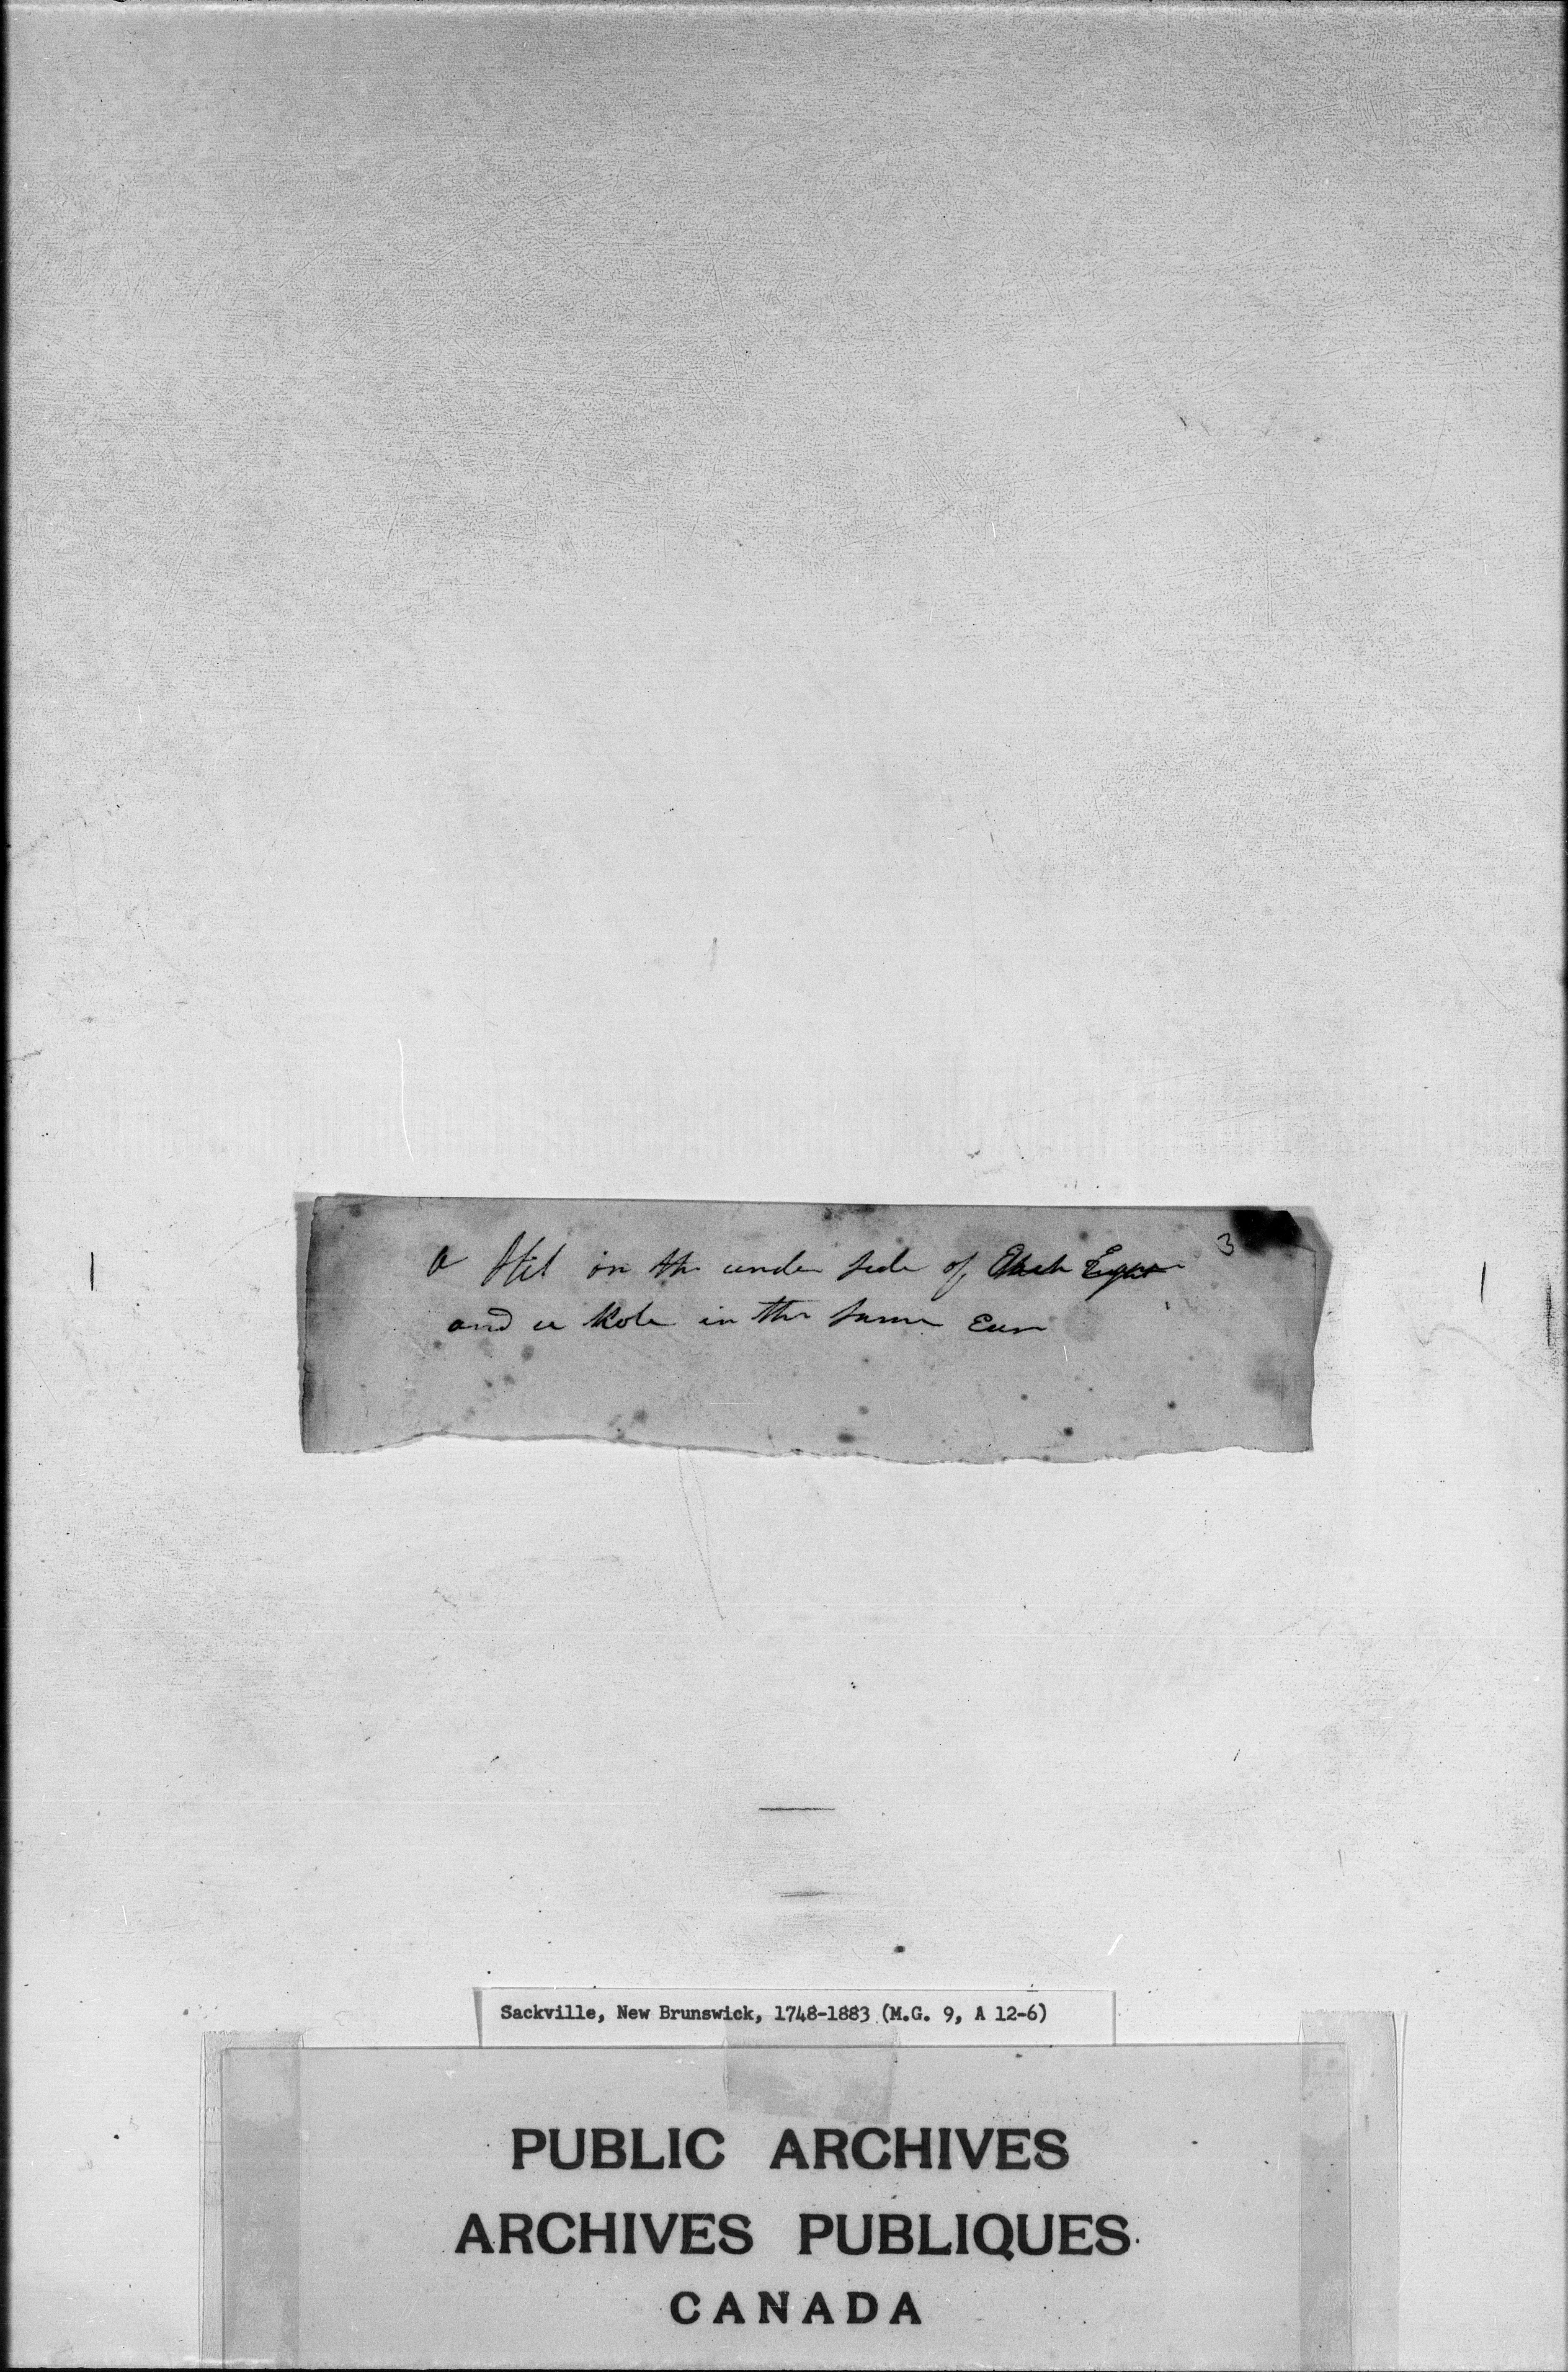 3
a slit in the under side of Each Ear
and a hole in the same Ear
Sackville, New Brunswick, 1748-1883 (M.G. 9, A 12-6)
PUBLIC ARCHIVES
ARCHIVES PUBLIQUES
CANADA